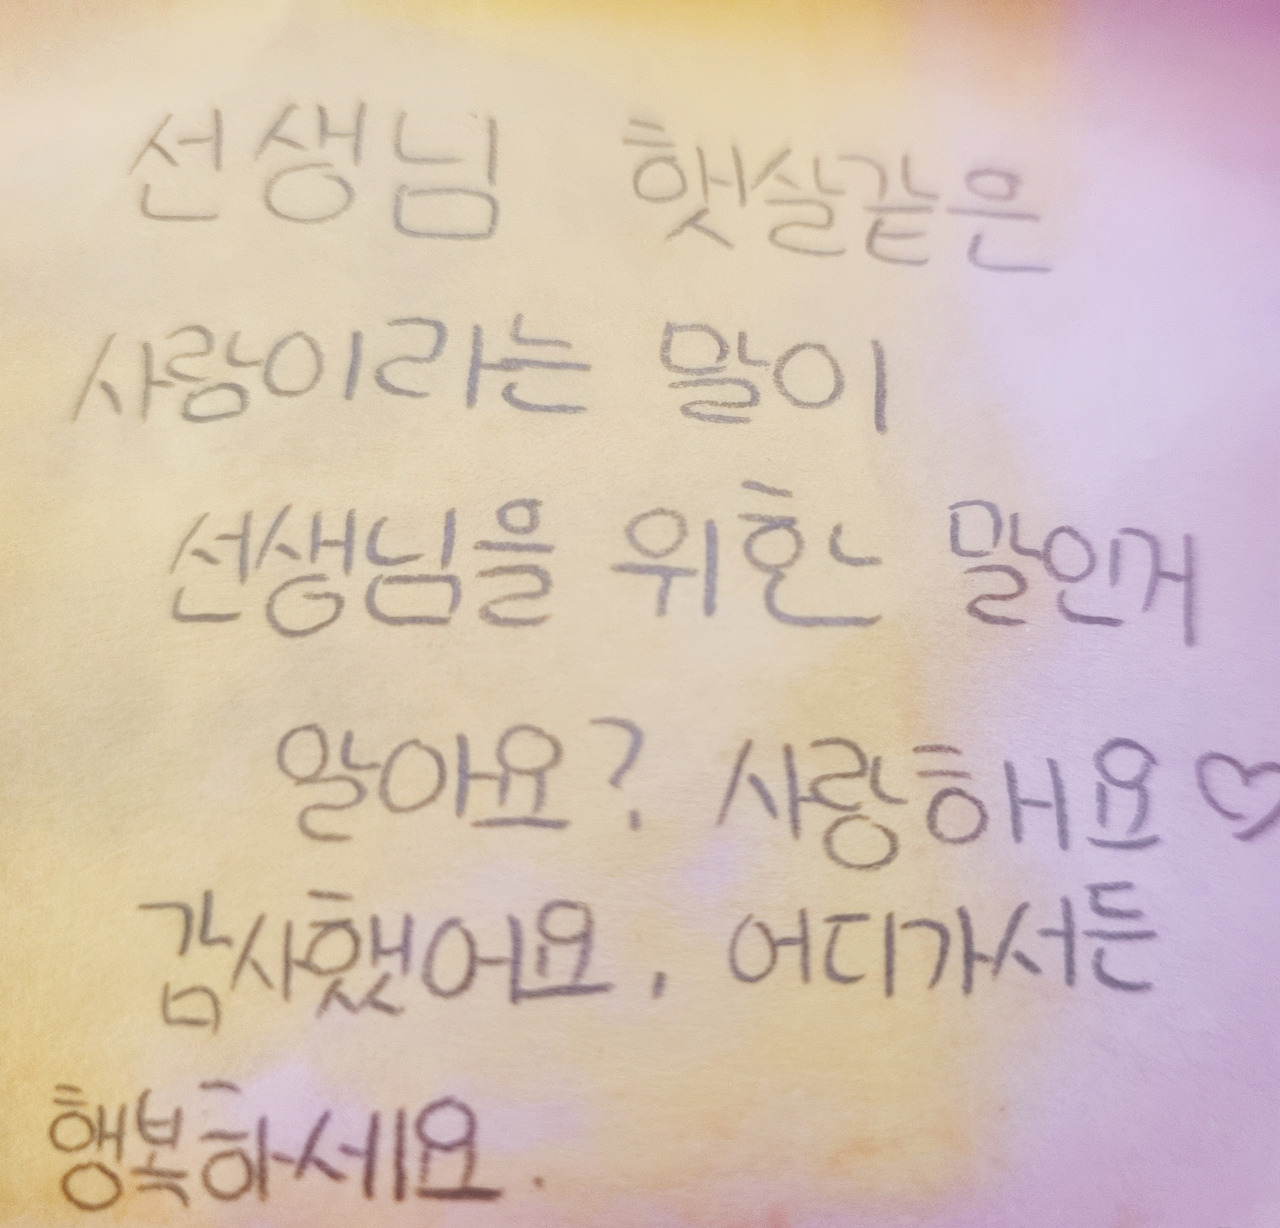 선생님 햇살같은
사람이라는 말이
선생님을 위한 말인거
알아요? 사랑해요♡
감사했어요. 어디가서든
행복하세요.